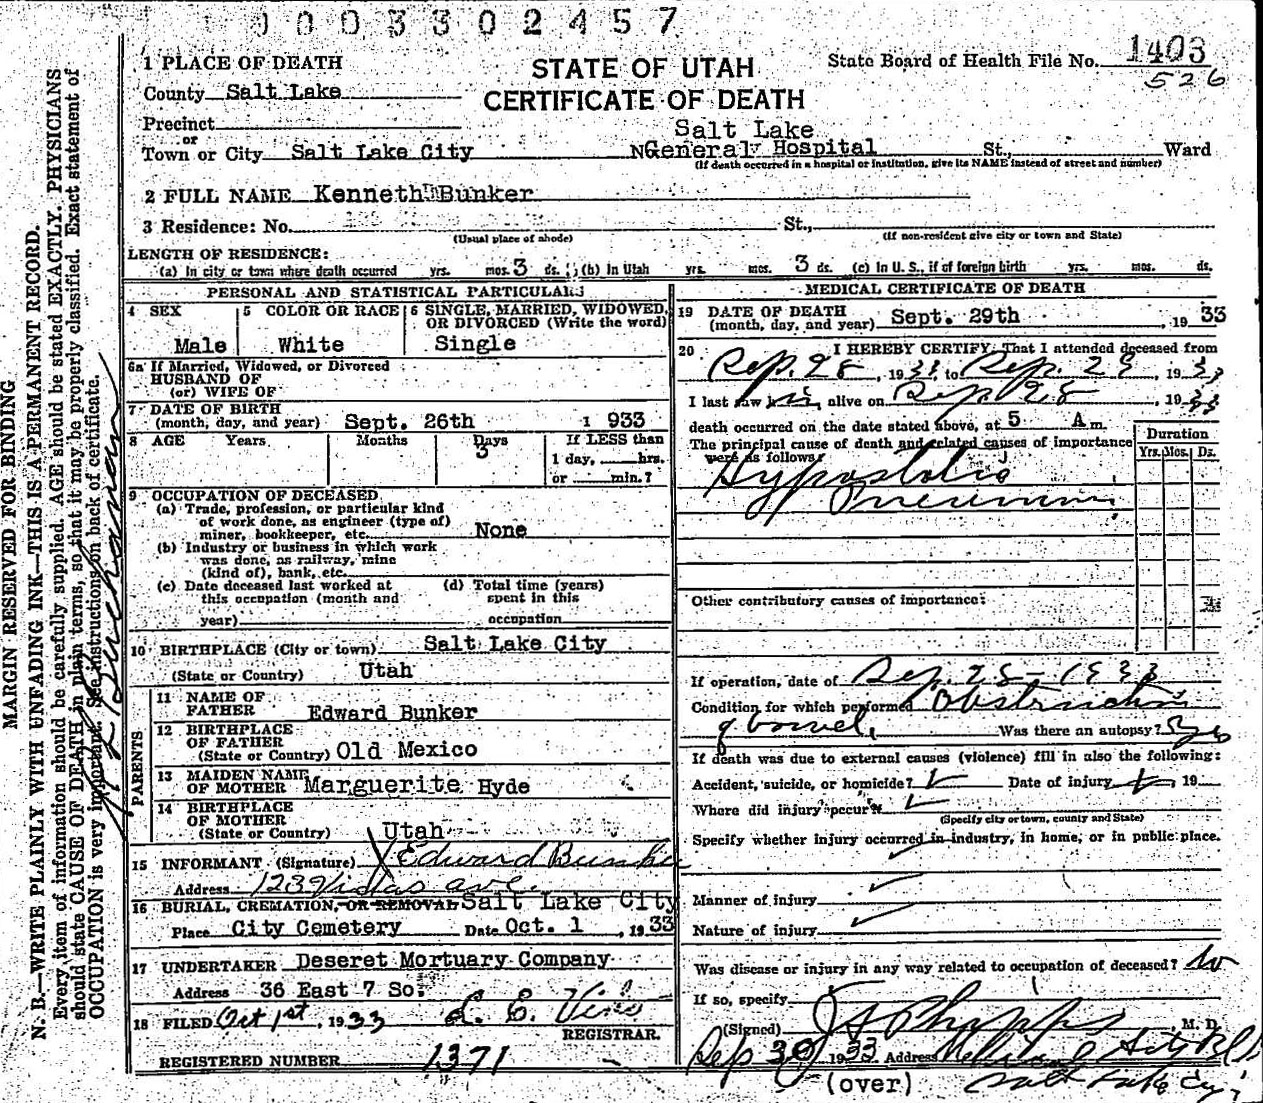 0003302457
1 PLACE OF DEATH
STATE OF UTAH
CERTIFICATE OF DEATH
State Board of Health File No. 1403
526
County Salt Lake
Precinct
or
Town or City Salt Lake City
Salt Lake
General Hospital St., Ward
(If death occurred in a hospital or institution, give its NAME instead of street and number)
2 FULL NAME Kenneth Bunker
3 Residence: No. St.,
(Usual place of abode) (If non-resident give city or town and State)
LENGTH OF RESIDENCE:
(a) In city or town where death occurred yrs. mos. 3 ds. (b) In Utah yrs. mos. 3 ds. (c) In U. S., if of foreign birth yrs. mos. ds.
PERSONAL AND STATISTICAL PARTICULARS
4 SEX
Male
5 COLOR OR RACE
White
6 SINGLE, MARRIED, WIDOWED,
OR DIVORCED (Write the word)
Single
6a If Married, Widowed, or Divorced
HUSBAND OF
(or) WIFE OF
7 DATE OF BIRTH
(month, day, and year) Sept. 26th 1933
8 AGE Years Months Days
3
If LESS than
1 day, hrs.
or min.?
9 OCCUPATION OF DECEASED
(a) Trade, profession, or particular kind
of work done, as engineer (type of)
miner, bookkeeper, etc. None
(b) Industry or business in which work
was done, as railway, mine
(kind of), bank, etc.
(c) Date deceased last worked at
this occupation (month and
year)
(d) Total time (years)
spent in this
occupation
10 BIRTHPLACE (City or town) Salt Lake City
(State or Country) Utah
PARENTS
11 NAME OF
FATHER Edward Bunker
12 BIRTHPLACE
OF FATHER
(State or Country) Old Mexico
13 MAIDEN NAME
OF MOTHER Marguerite Hyde
14 BIRTHPLACE
OF MOTHER
(State or Country) Utah
15 INFORMANT (Signature) Edward Bunker
Address 123 ave.
16 BURIAL, CREMATION, OR REMOVAL Salt Lake City
Place City Cemetery Date Oct. 1, 1933
17 UNDERTAKER Deseret Mortuary Company
Address 36 East 7 So.
18 FILED Oct 1st, 1933
REGISTRAR.
REGISTERED NUMBER 1371
MEDICAL CERTIFICATE OF DEATH
19 DATE OF DEATH
(month, day, and year) Sept. 29th, 1933
20 I HEREBY CERTIFY, That I attended deceased from
Sep. 28, 1933, to Sep. 29 1933
I last saw him alive on Sep 28, 1933
death occurred on the date stated above, at 5 A m.
The principal cause of death and related causes of importance
were as follows
Duration
Yrs. Mos. Ds.
Hypostatic
Pneumonia
Other contributory causes of importance:
If operation, date of Sep. 28 - 1933
Condition for which performed Obstruction
of bowel. Was there an autopsy? Yes
If death was due to external causes (violence) fill in also the following:
Accident, suicide, or homicide? Date of injury 19
Where did injury occur?
(Specify city or town, county and State)
Specify whether injury occurred in industry, in home, or in public place.
Manner of injury
Nature of injury
Was disease or injury in any way related to occupation of deceased? No
If so, specify
(Signed) M. D.
Sep 30 1933 Address
Salt Lake City
(over)
MARGIN RESERVED FOR BINDING
N. B.—WRITE PLAINLY WITH UNFADING INK—THIS IS A PERMANENT RECORD.
Every item of information should be carefully supplied. AGE should be stated EXACTLY. PHYSICIANS
should state CAUSE OF DEATH in plain terms, so that it may be properly classified. Exact statement of
OCCUPATION is very important. See instructions on back of certificate.